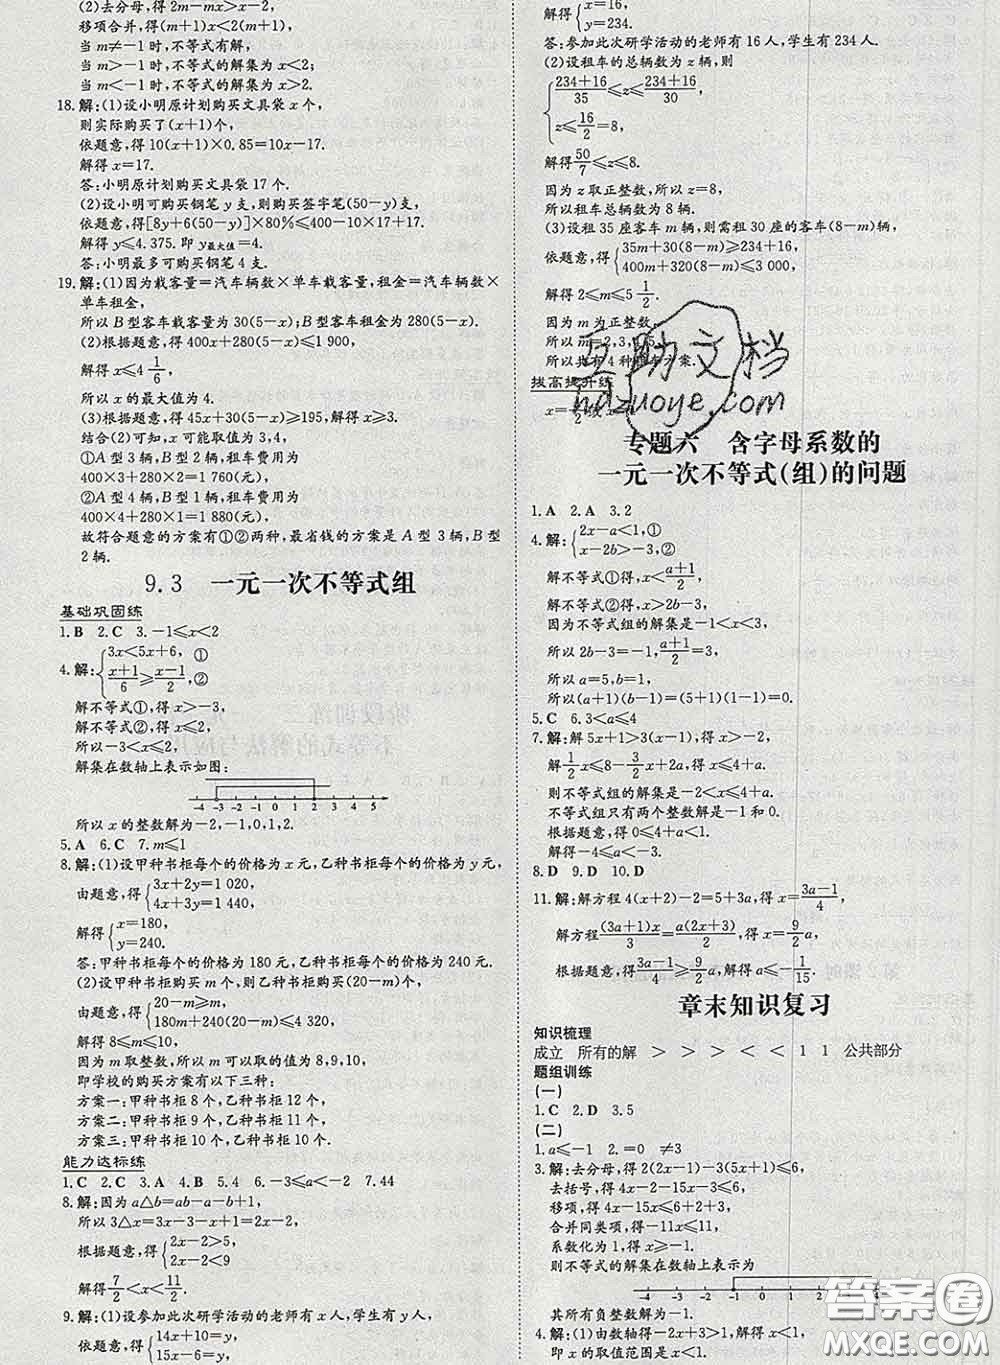 (2)去分母,得2m-mx>x-2.
移项合并,得(m+1)x<2(m+1).
当m≠-1时,不等式有解,
当m>-1时,不等式的解集为x<2;
当m<-1时,不等式的解集为x>2.
18.解:(1)设小明原计划购买文具袋x个,
则实际购买了(x+1)个,
依题意,得10(x+1)×0.85=10x-17.
解得x=17.
答:小明原计划购买文具袋17个.
(2)设小明可购买钢笔y支,则购买签字笔(50-y)支,
依题意,得[8y+6(50-y)]×80%≤400-10×17+17.
解得y≤4.375.即y最大值=4.
答:小明最多可购买钢笔4支.
19.解:(1)因为载客量=汽车辆数×单车载客量,租金=汽车辆数×
单车租金,
所以B型客车载客量为30(5-x);B型客车租金为280(5-x).
(2)根据题意,得400x+280(5-x)≤1 900,
解得x≤4 1/6.
所以x的最大值为4.
(3)根据题意,得45x+30(5-x)≥195,解得x≥3.
结合(2)可知,x可能取值为3,4,
①A型3辆,B型2辆,租车费用为
400×3+280×2=1 760(元),
②A型4辆,B型1辆,租车费用为
400×4+280×1=1 880(元),
故符合题意的方案有①②两种,最省钱的方案是A型3辆,B型
2辆.
9.3 一元一次不等式组
基础巩固练
1.B 2.C 3.-1≤x<2
4.解:{3x<5x+6,①
(x+1)/6≥(x-1)/2,②
解不等式①,得x>-3,
解不等式②,得x≤2,
所以-3<x≤2,
解集在数轴上表示如图:
-4 -3 -2 -1 0 1 2 3 4 5
所以x的整数解为-2,-1,0,1,2.
5.A 6.C 7.m≤1
8.解:(1)设甲种书柜每个的价格为x元,乙种书柜每个的价格为y元,
由题意,得{3x+2y=1 020,
4x+3y=1 440,
解得{x=180,
y=240.
答:甲种书柜每个的价格为180元,乙种书柜每个的价格为240元.
(2)设甲种书柜购买m个,则乙种书柜购买(20-m)个.
根据题意,得{20-m≥m,
180m+240(20-m)≤4 320,
解得8≤m≤10,
因为m取整数,所以m可以取的值为8,9,10,
即学校的购买方案有以下三种:
方案一:甲种书柜8个,乙种书柜12个,
方案二:甲种书柜9个,乙种书柜11个,
方案三:甲种书柜10个,乙种书柜10个.
能力达标练
1.C 2.C 3.A 4.B 5.4 6.-3≤a<-2 7.44
8.解:因为a△b=ab-a-b+1,
所以3△x=3x-3-x+1=2x-2,
根据题意,得{2x-2>5,
2x-2<9
解得7/2<x<11/2.
9.解:(1)设参加此次研学活动的老师有x人,学生有y人,
依题意,得{14x+10=y,
15x-6=y,
解得{x=16,
y=234.
答:参加此次研学活动的老师有16人,学生有234人.
(2)设租车的总辆数为z辆,则
{(234+16)/35≤z≤(234+16)/30,
z≤16/2=8,
解得50/7≤z≤8.
因为z取正整数,所以z=8,
所以租车总辆数为8辆.
(3)设租35座客车m辆,则需租30座的客车(8-m)辆,
依题意,得{35m+30(8-m)≥234+16,
400m+320(8-m)≤3 000,
解得2≤m≤5 1/2.
因为m为正整数,
所以m=2,3,4,5.
所以共有4种租车方案.
拔高提升练
互助文档
hdzuoye.com
专题六 含字母系数的
一元一次不等式(组)的问题
1.A 2.A 3.2
4.解:{2x-a<1,①
x-2b>-3,②
解不等式①得,x<(a+1)/2,
解不等式②得,x>2b-3,
因为不等式组的解集是-1<x<3,
所以2b-3=-1,(a+1)/2=3,
所以a=5,b=1,
所以(a+1)(b-1)=(5+1)(1-1)=0.
5.C 6.3<a≤4
7.解:解5x+1>3(x-1),得x>-2,
解1/2x≤8-3/2x+2a,得x≤4+a.
则不等式组的解集是-2<x≤4+a.
不等式组只有两个整数解是-1和0.
根据题意,得0≤4+a<1.
解得-4≤a<-3.
8.D 9.D 10.D
11.解:解方程4(x+2)-2=5+3a,得x=(3a-1)/4,
解方程(3a+1)x/3=a(2x+3)/2,得x=9/2a,
根据题意,得(3a-1)/4≥9/2a,解得a≤-1/15.
章末知识复习
知识梳理
成立 所有的解 > > > < < 1 1 公共部分
题组训练
(一)
1.C 2.D 3.5
(二)
1.a≤-1 2.=0 ≠3
3.解:去分母,得2(2x-1)-3(5x+1)≤6,
去括号,得4x-2-15x-3≤6,
移项,得4x-15x≤6+2+3,
合并同类项,得-11x≤11,
系数化为1,得x≥-1.
则不等式的解集在数轴上表示为
-4 -3 -2 -1 0 1 2 3
其所有负整数解为-1.
4.解:(1)由数轴得-2x+3>1,解得x<1,
即x的取值范围是x<1.
答案圈
MXQE.COM